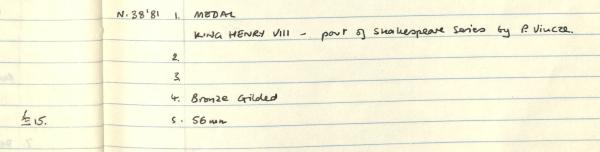 N.38'81 1. MEDAL
KING HENRY VIII - part of Shakespeare Series by P. Vincze.
2.
3.
4. Bronze Gilded
£15. 5. 56mm